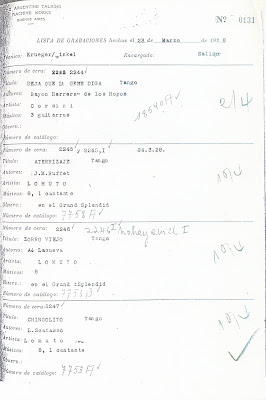 ARGENTINE TALKING
MACHINE WORKS
BUENOS AIRES
Nº 0131
LISTA DE GRABACIONES hechas el 28 de Marzo de 192 8
Técnico: Krueger/ inkel Encargado: Seliger
Número de cera: 2244
Título: DEJA QUE LA GENTE DIGA Tango
Autores: Bayon Herrera= de los Hoyos
Artista: Corsini
Músicos: 3 guitarras
Observ.:
Número de catálogo:
2/4
Número de cera: 2245 y 2245,I 24.3.28.
Título: ATERRIZAJE Tango
Autores: J.M.Ruffet
Artista: LOMUTO
Músicos: 8, 1 cantante
Observ.: en el Grand Splendid
Número de catálogo: 7758 A
Número de cera: 2246 2246 I no hay en el I
Título: ZORRO VIEJO Tango
Autores:
Artista: LOMUTO
Músicos: 8
Observ.: en el Grand Splendid
Número de catálogo:
Número de cera: 2247
Título: CHINGOLITO Tango
Autores: L.Scatasso
Artista: Lomuto
Músicos: 8, 1 cantante
Observ.:
Número de catálogo: 7753